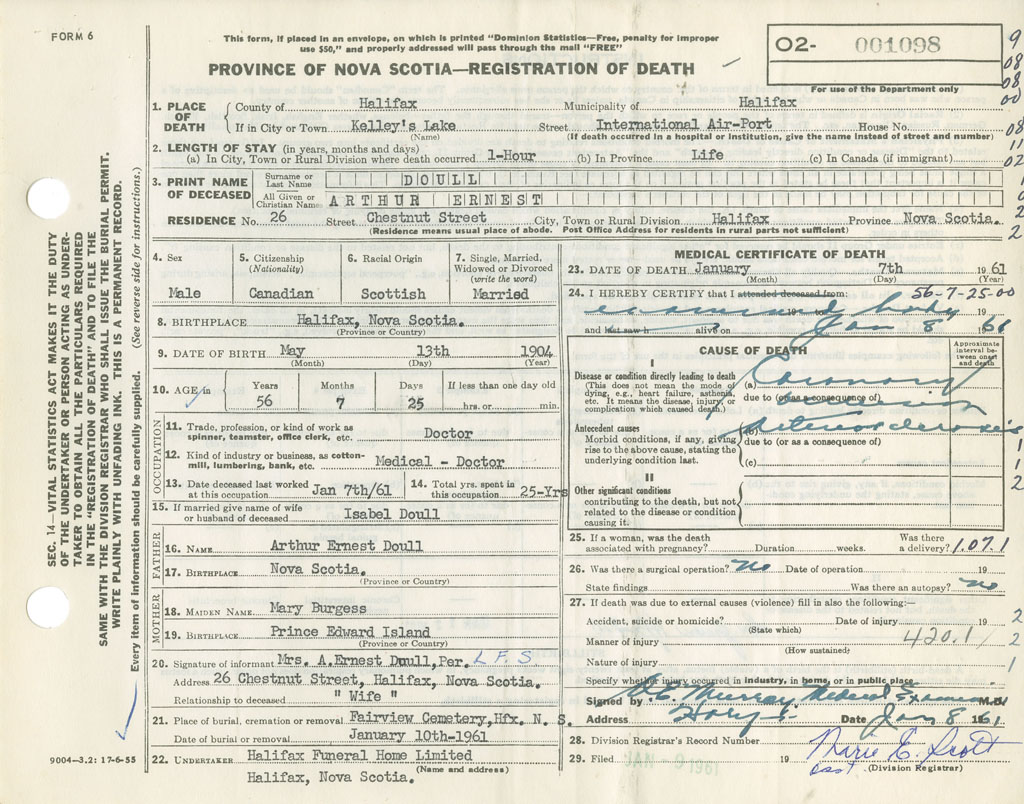 FORM 6
This form, if placed in an envelope, on which is printed "Dominion Statistics—Free, penalty for improper
use $50," and properly addressed will pass through the mail "FREE"
PROVINCE OF NOVA SCOTIA—REGISTRATION OF DEATH
O2- 001098
For use of the Department only
9
08
08
00
1. PLACE OF DEATH
County of Halifax Municipality of Halifax
If in City or Town Kelley's Lake Street International Air-Port House No.
(Name) (If death occurred in a hospital or institution, give the name instead of street and number)
08
11
02
2. LENGTH OF STAY (in years, months and days)
(a) In City, Town or Rural Division where death occurred 1-Hour (b) In Province Life (c) In Canada (if immigrant)
3. PRINT NAME OF DECEASED
Surname or Last Name DOULL
All Given or Christian Names ARTHUR ERNEST
RESIDENCE No. 26 Street Chestnut Street City, Town or Rural Division Halifax Province Nova Scotia.
(Residence means usual place of abode. Post Office Address for residents in rural parts not sufficient)
1
0
2
2
4. Sex
Male
5. Citizenship
(Nationality)
Canadian
6. Racial Origin
Scottish
7. Single, Married,
Widowed or Divorced
(write the word)
Married
8. BIRTHPLACE Halifax, Nova Scotia.
(Province or Country)
9. DATE OF BIRTH May 13th 1904
(Month) (Day) (Year)
10. AGE in
Years Months Days If less than one day old
56 7 25 hrs. or min.
OCCUPATION
11. Trade, profession, or kind of work as
spinner, teamster, office clerk, etc. Doctor
12. Kind of industry or business, as cotton-
mill, lumbering, bank, etc. Medical - Doctor
13. Date deceased last worked
at this occupation Jan 7th/61
14. Total yrs. spent in
this occupation 25-Yrs
15. If married give name of wife
or husband of deceased Isabel Doull
FATHER
16. NAME Arthur Ernest Doull
17. BIRTHPLACE Nova Scotia.
(Province or Country)
MOTHER
18. MAIDEN NAME Mary Burgess
19. BIRTHPLACE Prince Edward Island
(Province or Country)
20. Signature of informant Mrs. A.Ernest Doull,Per. L F S
Address 26 Chestnut Street, Halifax, Nova Scotia.
Relationship to deceased " Wife "
21. Place of burial, cremation or removal Fairview Cemetery,Hfx. N. S.
Date of burial or removal January 10th-1961
22. UNDERTAKER Halifax Funeral Home Limited
(Name and address)
Halifax, Nova Scotia.
MEDICAL CERTIFICATE OF DEATH
23. DATE OF DEATH January 7th 1961
(Month) (Day) (Year)
24. I HEREBY CERTIFY that I attended deceased from: 56-7-25-00
examined body 19
and last saw h alive on Jan 8 1961
CAUSE OF DEATH
Approximate
interval be-
tween onset
and death
I
Disease or condition directly leading to death
(This does not mean the mode of
dying, e.g., heart failure, asthenia,
etc. It means the disease, injury or
complication which caused death.)
(a) Coronary
due to (or as a consequence of)
occlusion
Antecedent causes
Morbid conditions, if any, giving
rise to the above cause, stating the
underlying condition last.
(b) Arteriosclerosis
due to (or as a consequence of)
(c)
1
1
2
II
Other significant conditions
contributing to the death, but not
related to the disease or condition
causing it.
25. If a woman, was the death
associated with pregnancy? Duration weeks.
Was there
a delivery? 1.07.1
26. Was there a surgical operation? No Date of operation 19
State findings Was there an autopsy? No
27. If death was due to external causes (violence) fill in also the following:—
Accident, suicide or homicide? Date of injury 19 2
(State which)
Manner of injury 420.1 / 2
(How sustained)
Nature of injury 1
Specify whether injury occurred in industry, in home, or in public place
Signed by Murray Medical Examiner M.D.
Address Date Jan 8 1961
28. Division Registrar's Record Number
29. Filed JAN - 9 1961 19 Marie E. Scott
(Division Registrar)
SEC. 14—VITAL STATISTICS ACT MAKES IT THE DUTY
OF THE UNDERTAKER OR PERSON ACTING AS UNDER-
TAKER TO OBTAIN ALL THE PARTICULARS REQUIRED
IN THE "REGISTRATION OF DEATH" AND TO FILE THE
SAME WITH THE DIVISION REGISTRAR WHO SHALL ISSUE THE BURIAL PERMIT.
WRITE PLAINLY WITH UNFADING INK. THIS IS A PERMANENT RECORD.
Every item of information should be carefully supplied. (See reverse side for instructions.)
9004—3.2: 17-6-55